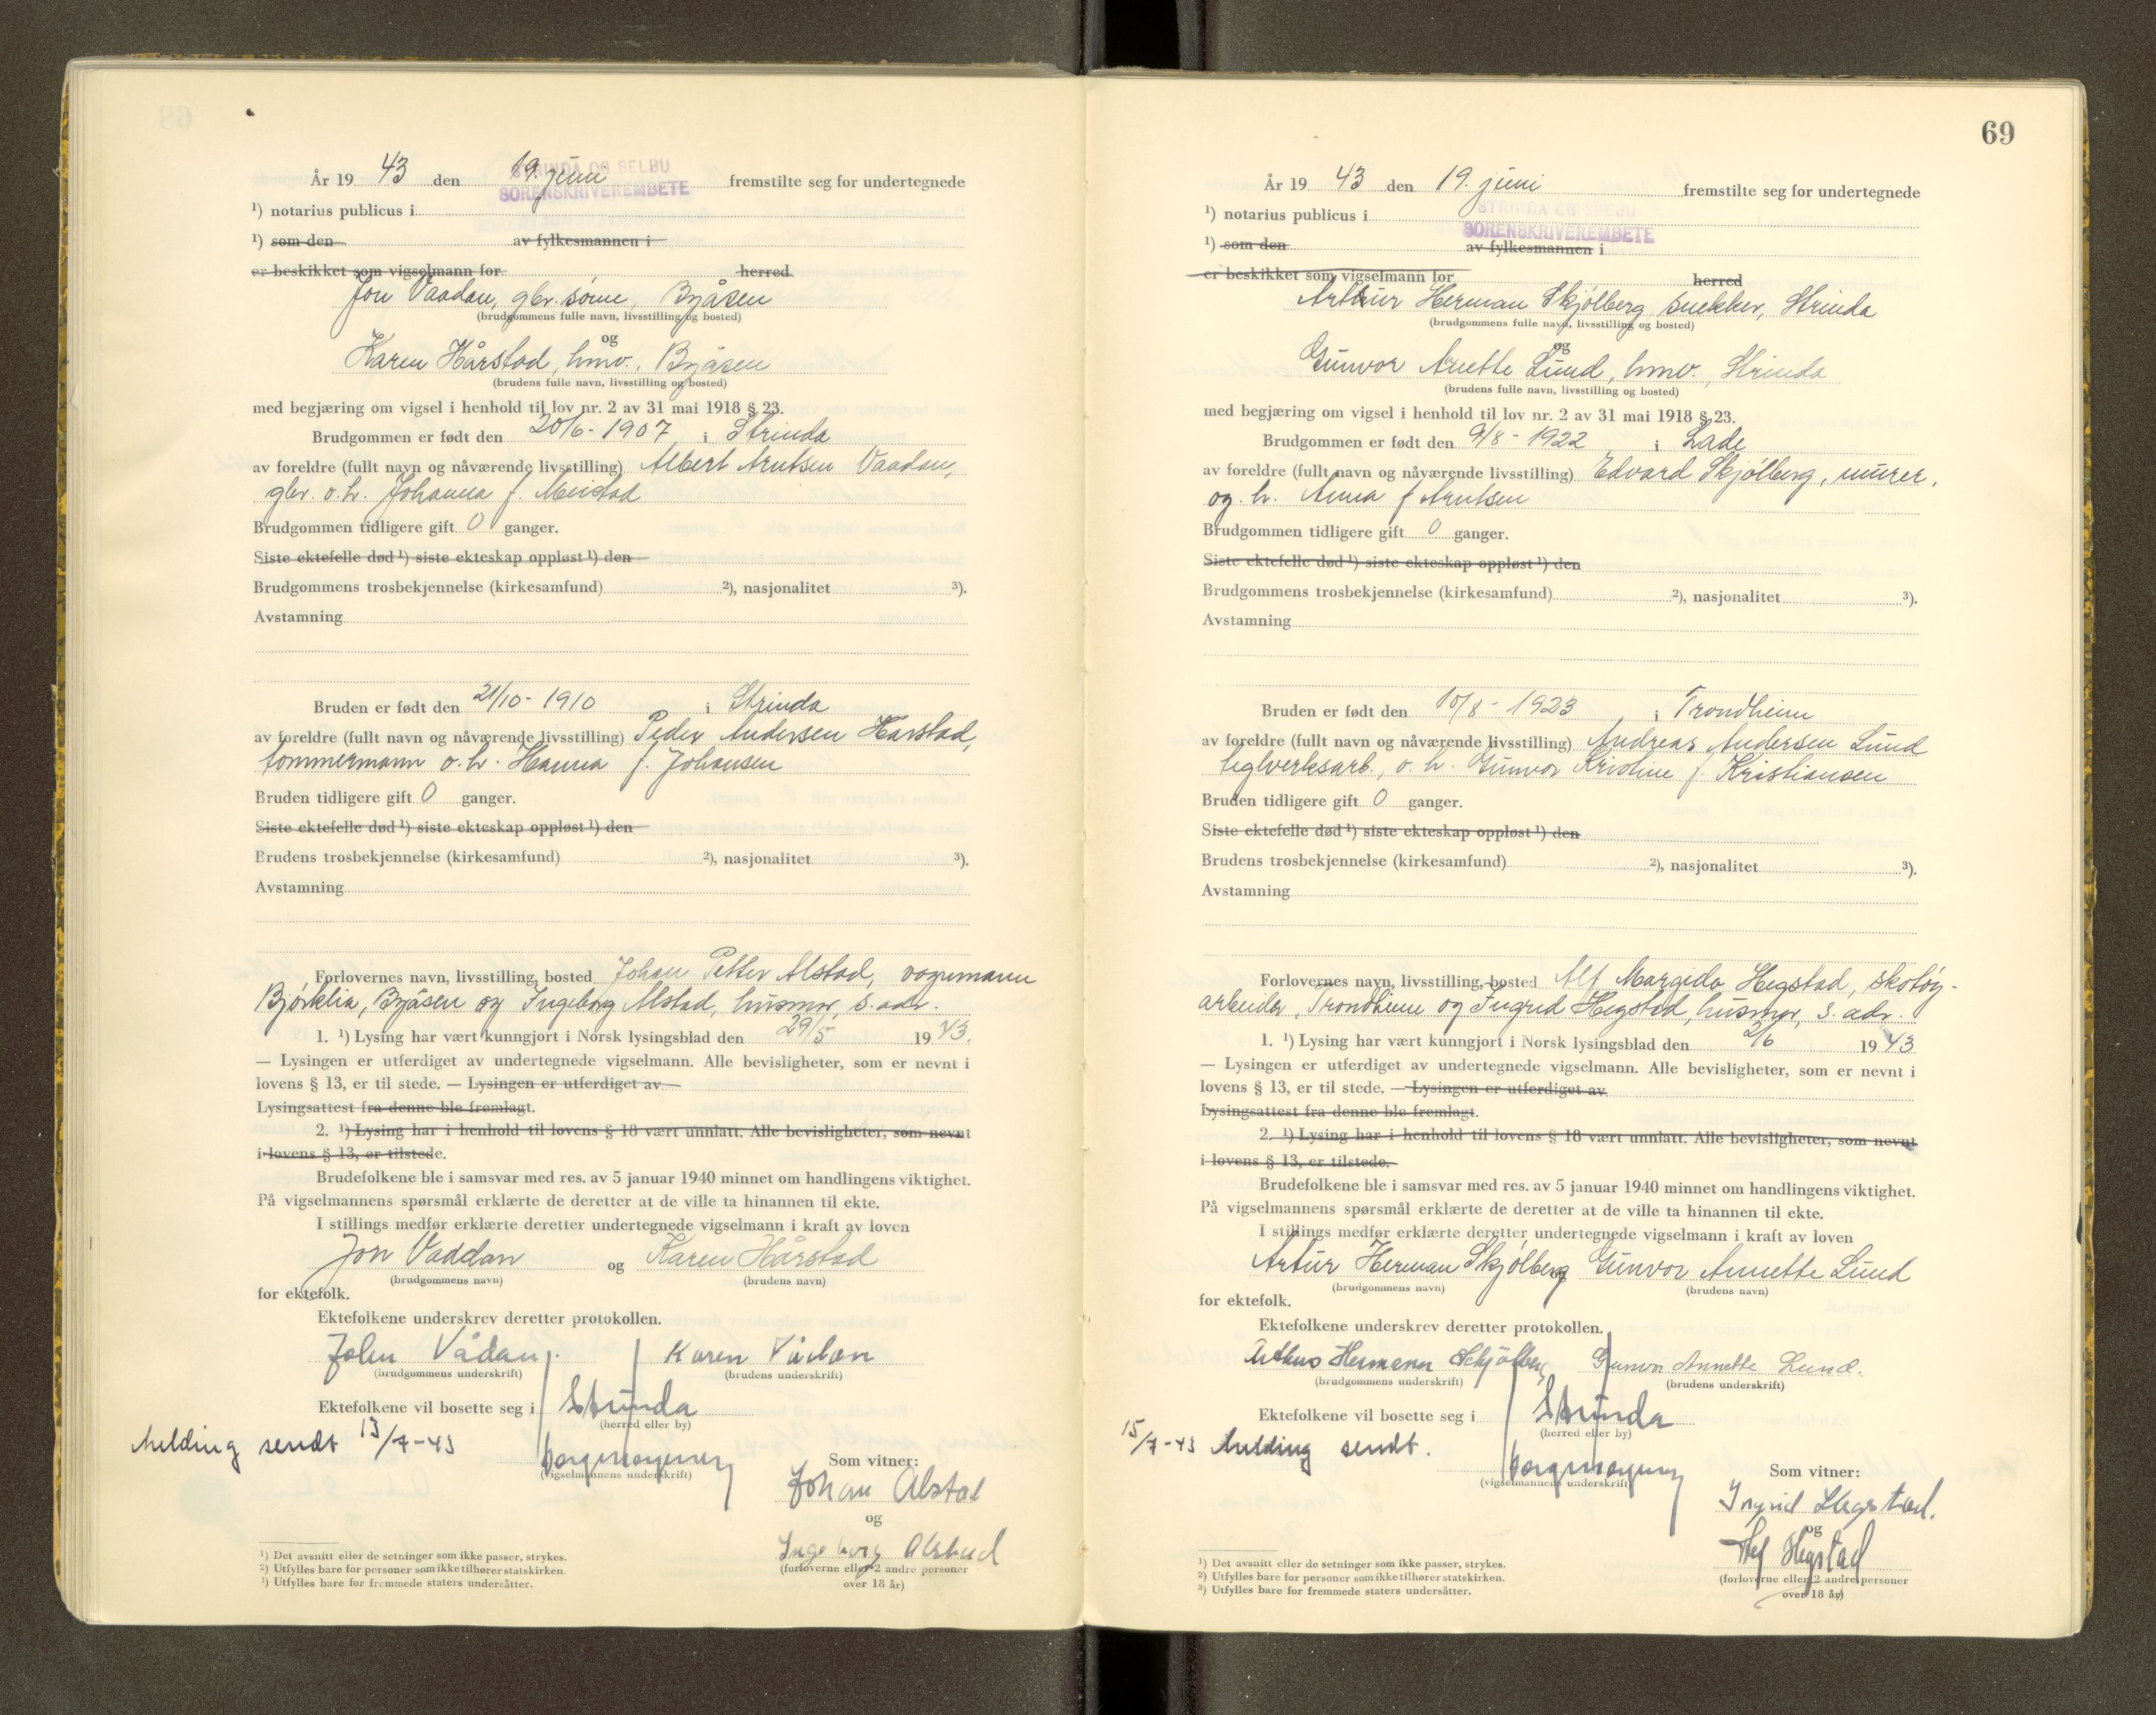 År 19 43 den 19. juni fremstilte seg for undertegnede
STRINDA OG SELBU
SORENSKRIVEREMBETE
¹) notarius publicus i
¹) som den av fylkesmannen i
er beskikket som vigselmann for herred
Jon Vaadan, gbr. sønn, Byåsen
(brudgommens fulle navn, livsstilling og bosted)
og
Karen Hårstad, hmv., Byåsen
(brudens fulle navn, livsstilling og bosted)
med begjæring om vigsel i henhold til lov nr. 2 av 31 mai 1918 § 23.
Brudgommen er født den 20/6 - 1907 i Strinda
av foreldre (fullt navn og nåværende livsstilling) Albert Arntsen Vaadan,
gbr. o. h. Johanna f. Meistad
Brudgommen tidligere gift 0 ganger.
Siste ektefelle død ¹) siste ekteskap oppløst ¹) den
Brudgommens trosbekjennelse (kirkesamfund) ²), nasjonalitet ³).
Avstamning
Bruden er født den 21/10 - 1910 i Strinda
av foreldre (fullt navn og nåværende livsstilling) Peder Andersen Hårstad,
tømmermann o. h. Hanna f. Johansen
Bruden tidligere gift 0 ganger.
Siste ektefelle død ¹) siste ekteskap oppløst ¹) den
Brudens trosbekjennelse (kirkesamfund) ²), nasjonalitet ³).
Avstamning
Forlovernes navn, livsstilling, bosted Johan Petter Alstad, vognmann
Bjørklia, Byåsen og Ingeborg Alstad, husmor, s. adr.
1. ¹) Lysing har vært kunngjort i Norsk lysingsblad den 29/5 19 43.
— Lysingen er utferdiget av undertegnede vigselmann. Alle bevisligheter, som er nevnt i
lovens § 13, er til stede. — Lysingen er utferdiget av
Lysingsattest fra denne ble fremlagt.
2. ¹) Lysing har i henhold til lovens § 18 vært unnlatt. Alle bevisligheter, som nevnt
i lovens § 13, er tilstede.
Brudefolkene ble i samsvar med res. av 5 januar 1940 minnet om handlingens viktighet.
På vigselmannens spørsmål erklærte de deretter at de ville ta hinannen til ekte.
I stillings medfør erklærte deretter undertegnede vigselmann i kraft av loven
Jon Vaddan og Karen Hårstad
(brudgommens navn) (brudens navn)
for ektefolk.
Ektefolkene underskrev deretter protokollen.
John Vådan Karen Vådan
(brudgommens underskrift) (brudens underskrift)
Ektefolkene vil bosette seg i Strinda
(herred eller by)
Melding sendt 13/7-43
(vigselmannens underskrift)
Som vitner:
Johan Alstad
og
Ingeborg Alstad
(forloverne eller 2 andre personer
over 18 år)
¹) Det avsnitt eller de setninger som ikke passer, strykes.
²) Utfylles bare for personer som ikke tilhører statskirken.
³) Utfylles bare for fremmede staters undersåtter.
69
År 19 43 den 19. juni fremstilte seg for undertegnede
¹) notarius publicus i
STRINDA OG SELBU
SORENSKRIVEREMBETE
¹) som den av fylkesmannen i
er beskikket som vigselmann for herred
Arthur Herman Skjølberg snekker, Strinda
(brudgommens fulle navn, livsstilling og bosted)
og
Gunvor Anette Lund, hmv., Strinda
(brudens fulle navn, livsstilling og bosted)
med begjæring om vigsel i henhold til lov nr. 2 av 31 mai 1918 § 23.
Brudgommen er født den 9/8 - 1922 i Lade
av foreldre (fullt navn og nåværende livsstilling) Edvard Skjølberg, murer,
og h. Anna f Arntsen
Brudgommen tidligere gift 0 ganger.
Siste ektefelle død ¹) siste ekteskap oppløst ¹) den
Brudgommens trosbekjennelse (kirkesamfund) ²), nasjonalitet ³).
Avstamning
Bruden er født den 10/8 - 1923 i Trondheim
av foreldre (fullt navn og nåværende livsstilling) Andreas Andersen Lund
teglverksarb., o. h. Gunvor Kristine f. Kristiansen
Bruden tidligere gift 0 ganger.
Siste ektefelle død ¹) siste ekteskap oppløst ¹) den
Brudens trosbekjennelse (kirkesamfund) ²), nasjonalitet ³).
Avstamning
Forlovernes navn, livsstilling, bosted Alf Margido Hegstad, skotøy-
arbeider, Trondheim og Ingrid Hegstad, husmor, s. adr.
1. ¹) Lysing har vært kunngjort i Norsk lysingsblad den 2/6 19 43
— Lysingen er utferdiget av undertegnede vigselmann. Alle bevisligheter, som er nevnt i
lovens § 13, er til stede. — Lysingen er utferdiget av
Lysingsattest fra denne ble fremlagt.
2. ¹) Lysing har i henhold til lovens § 18 vært unnlatt. Alle bevisligheter, som nevnt
i lovens § 13, er tilstede.
Brudefolkene ble i samsvar med res. av 5 januar 1940 minnet om handlingens viktighet.
På vigselmannens spørsmål erklærte de deretter at de ville ta hinannen til ekte.
I stillings medfør erklærte deretter undertegnede vigselmann i kraft av loven
Artur Herman Skjølberg Gunvor Annette Lund
(brudgommens navn) (brudens navn)
for ektefolk.
Ektefolkene underskrev deretter protokollen.
Arthur Hermann Skjølberg Gunvor Annette Lund.
(brudgommens underskrift) (brudens underskrift)
Ektefolkene vil bosette seg i Strinda
(herred eller by)
15/7-43 Melding sendt.
(vigselmannens underskrift)
Som vitner:
Ingrid Hegstad.
og
Alf Hegstad
(forloverne eller 2 andre personer
over 18 år)
¹) Det avsnitt eller de setninger som ikke passer, strykes.
²) Utfylles bare for personer som ikke tilhører statskirken.
³) Utfylles bare for fremmede staters undersåtter.